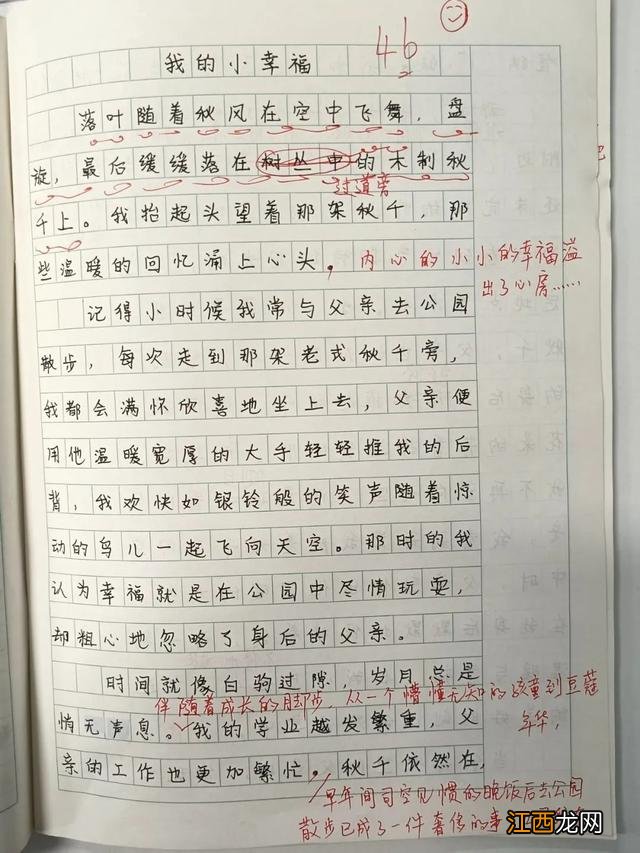 46
我的小幸福
落叶随着秋风在空中飞舞，盘
旋，最后缓缓落在树丛中的木制秋
过道旁
千上。我抬起头望着那架秋千，那
些温暖的回忆涌上心头，内心的小小的幸福溢
出了心房……
记得小时候我常与父亲去公园
散步，每次走到那架老式秋千旁，
我都会满怀欣喜地坐上去，父亲便
用他温暖宽厚的大手轻轻推我的后
背，我欢快如银铃般的笑声随着惊
动的鸟儿一起飞向天空。那时的我
认为幸福就是在公园中尽情玩耍，
却粗心地忽略了身后的父亲。
时间就像白驹过隙，岁月总是
伴随着成长的脚步，从一个懵懂无知的孩童到豆蔻
年华，
悄无声息。我的学业越发繁重，父
亲的工作也更加繁忙。秋千依然在，
早年间司空见惯的晚饭后去公园
散步已成了一件奢侈的事
江西龙网